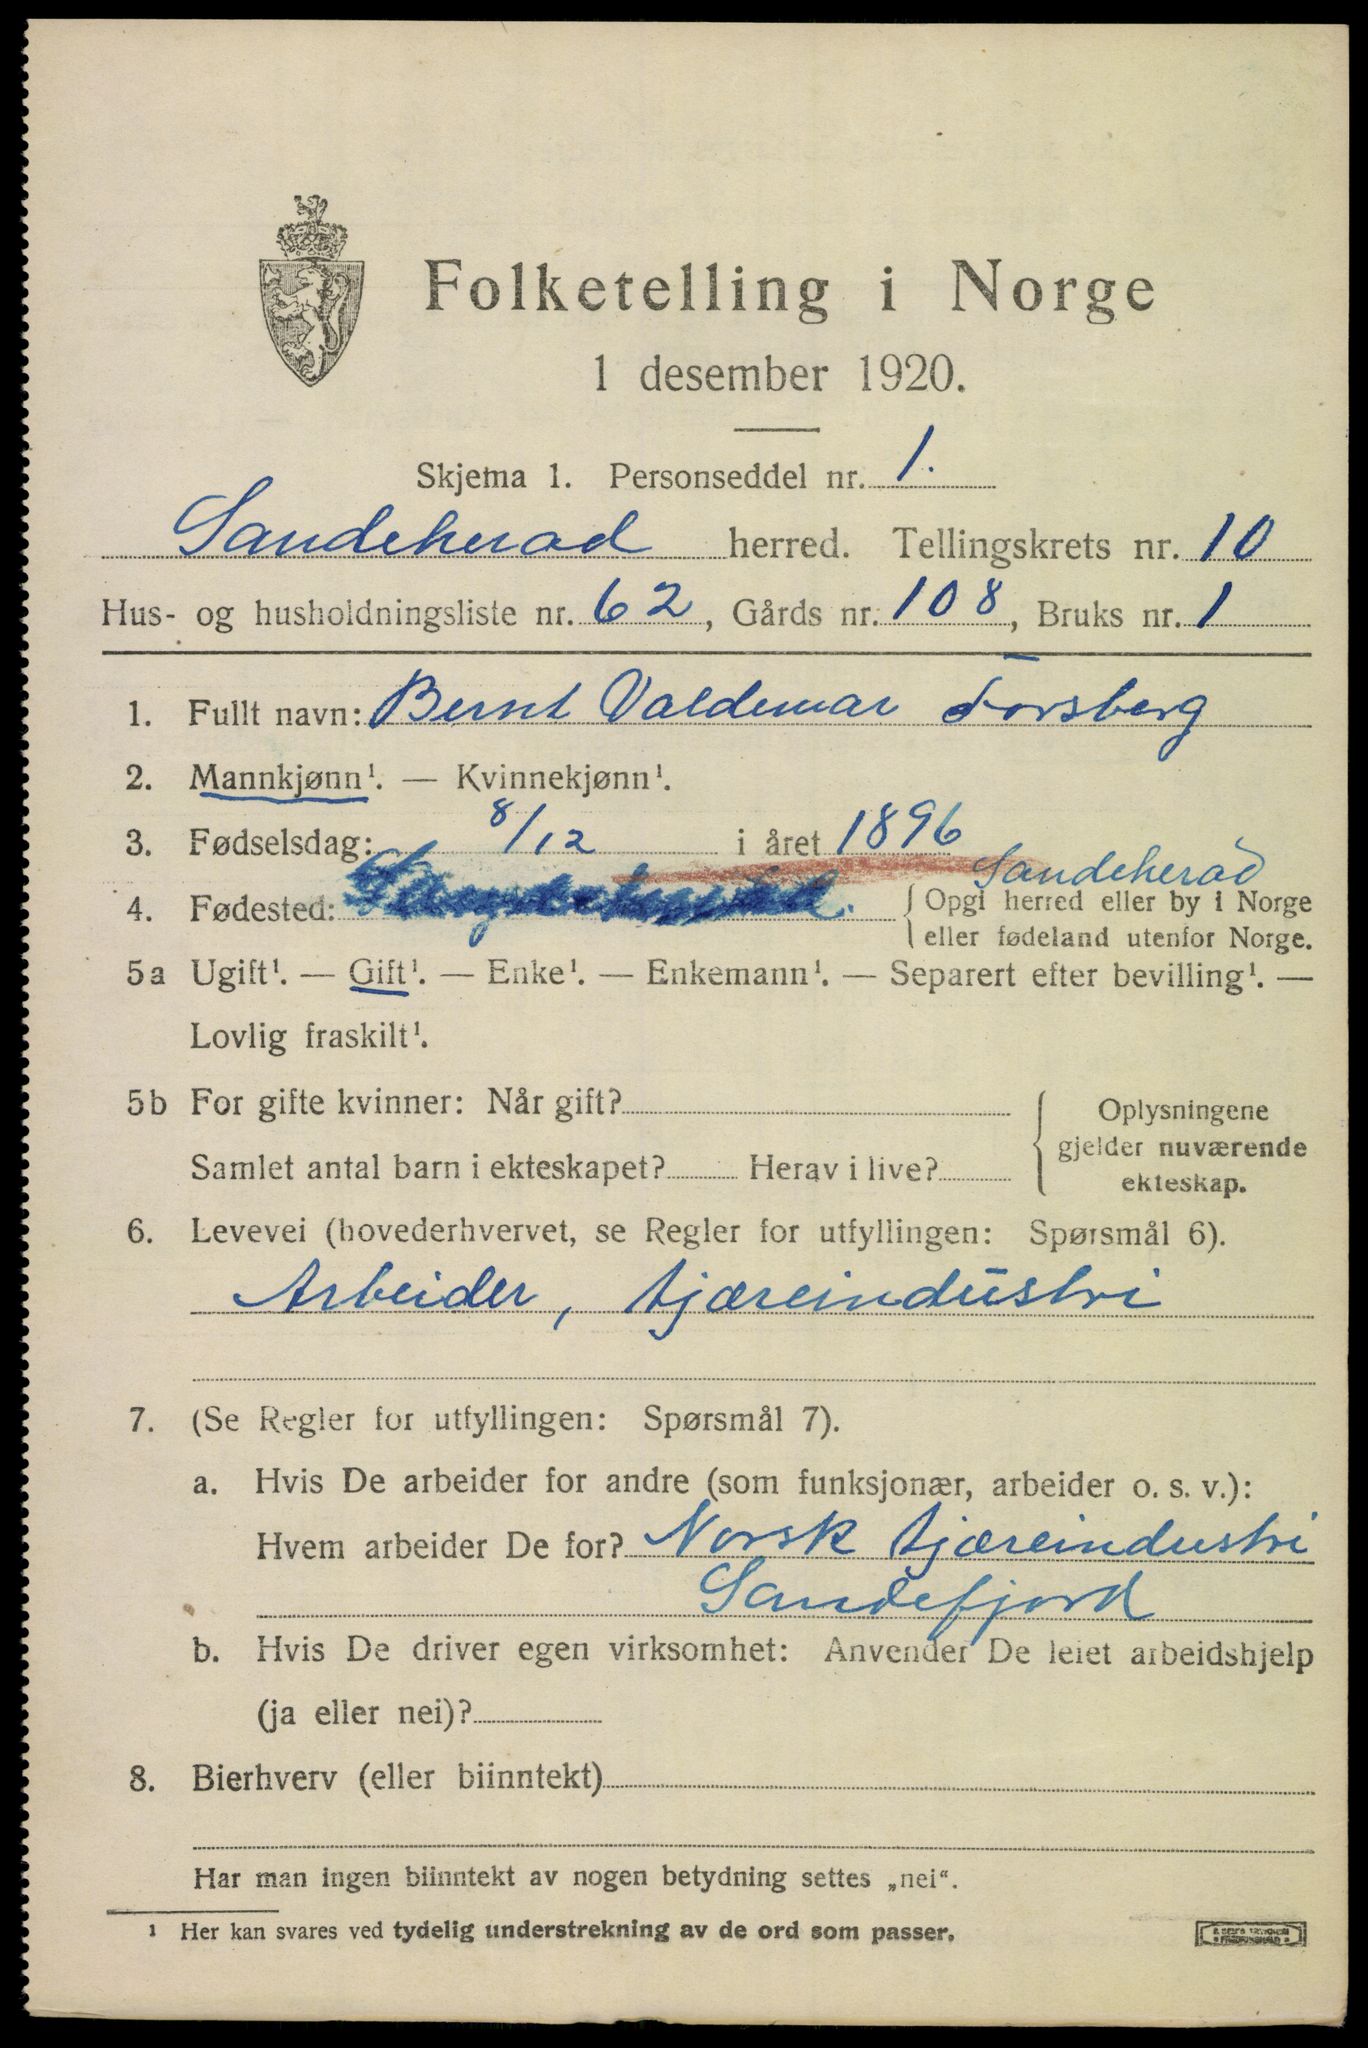 Folketelling i Norge
1 desember 1920.
Skjema 1. Personseddel nr. 1.
Sandeherad herred. Tellingskrets nr. 10
Hus- og husholdningsliste nr. 62, Gårds nr. 108, Bruks nr. 1
1. Fullt navn: Bernt Valdemar Forsberg
2. Mannkjønn¹. — Kvinnekjønn¹.
3. Fødselsdag: 8/12 i året 1896
Sandeherad
4. Fødested: { Opgi herred eller by i Norge
eller fødeland utenfor Norge.
5a Ugift¹. — Gift¹. — Enke¹. — Enkemann¹. — Separert efter bevilling¹. —
Lovlig fraskilt¹.
5b For gifte kvinner: Når gift?
Samlet antal barn i ekteskapet? Herav i live?
{ Oplysningene
gjelder nuværende
ekteskap.
6. Levevei (hovederhvervet, se Regler for utfyllingen: Spørsmål 6).
Arbeider, tjæreindustri
7. (Se Regler for utfyllingen: Spørsmål 7).
a. Hvis De arbeider for andre (som funksjonær, arbeider o. s. v.):
Hvem arbeider De for? Norsk tjæreindustri
Sandefjord
b. Hvis De driver egen virksomhet: Anvender De leiet arbeidshjelp
(ja eller nei)?
8. Bierhverv (eller biinntekt)
Har man ingen biinntekt av nogen betydning settes „nei“.
¹ Her kan svares ved tydelig understrekning av de ord som passer.